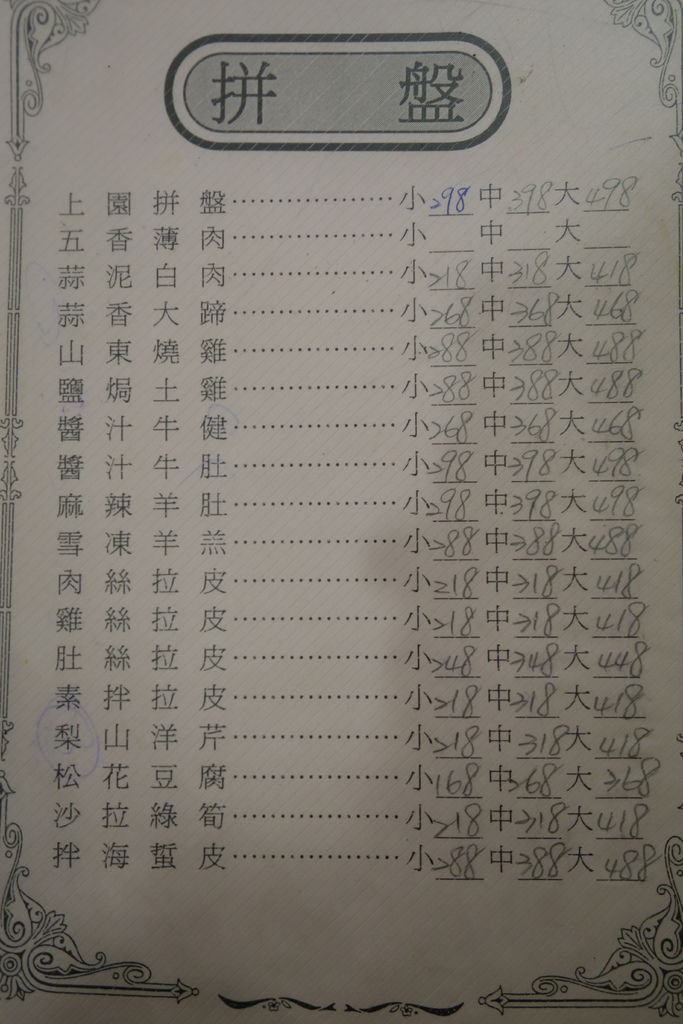 拼盤
上園拼盤………………小298中398大498
五香薄肉………………小 中 大
蒜泥白肉………………小218中318大418
蒜香大蹄………………小268中368大468
山東燒雞………………小288中388大488
鹽焗土雞………………小288中388大488
醬汁牛健………………小268中368大468
醬汁牛肚………………小298中398大498
麻辣羊肚………………小298中398大498
雪凍羊羔………………小288中388大488
肉絲拉皮………………小218中318大418
雞絲拉皮………………小218中318大418
肚絲拉皮………………小248中348大448
素拌拉皮………………小218中318大418
梨山洋芹………………小218中318大418
松花豆腐………………小168中268大368
沙拉綠筍………………小218中318大418
拌海蜇皮………………小288中388大488